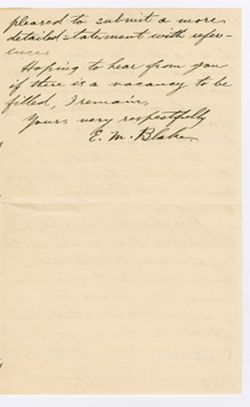 pleased to submit a more
detailed statement with refer-
ences
Hoping to hear from you
if there is a vacancy to be
filled, I remain,
Yours very respectfully
E. M. Blake.